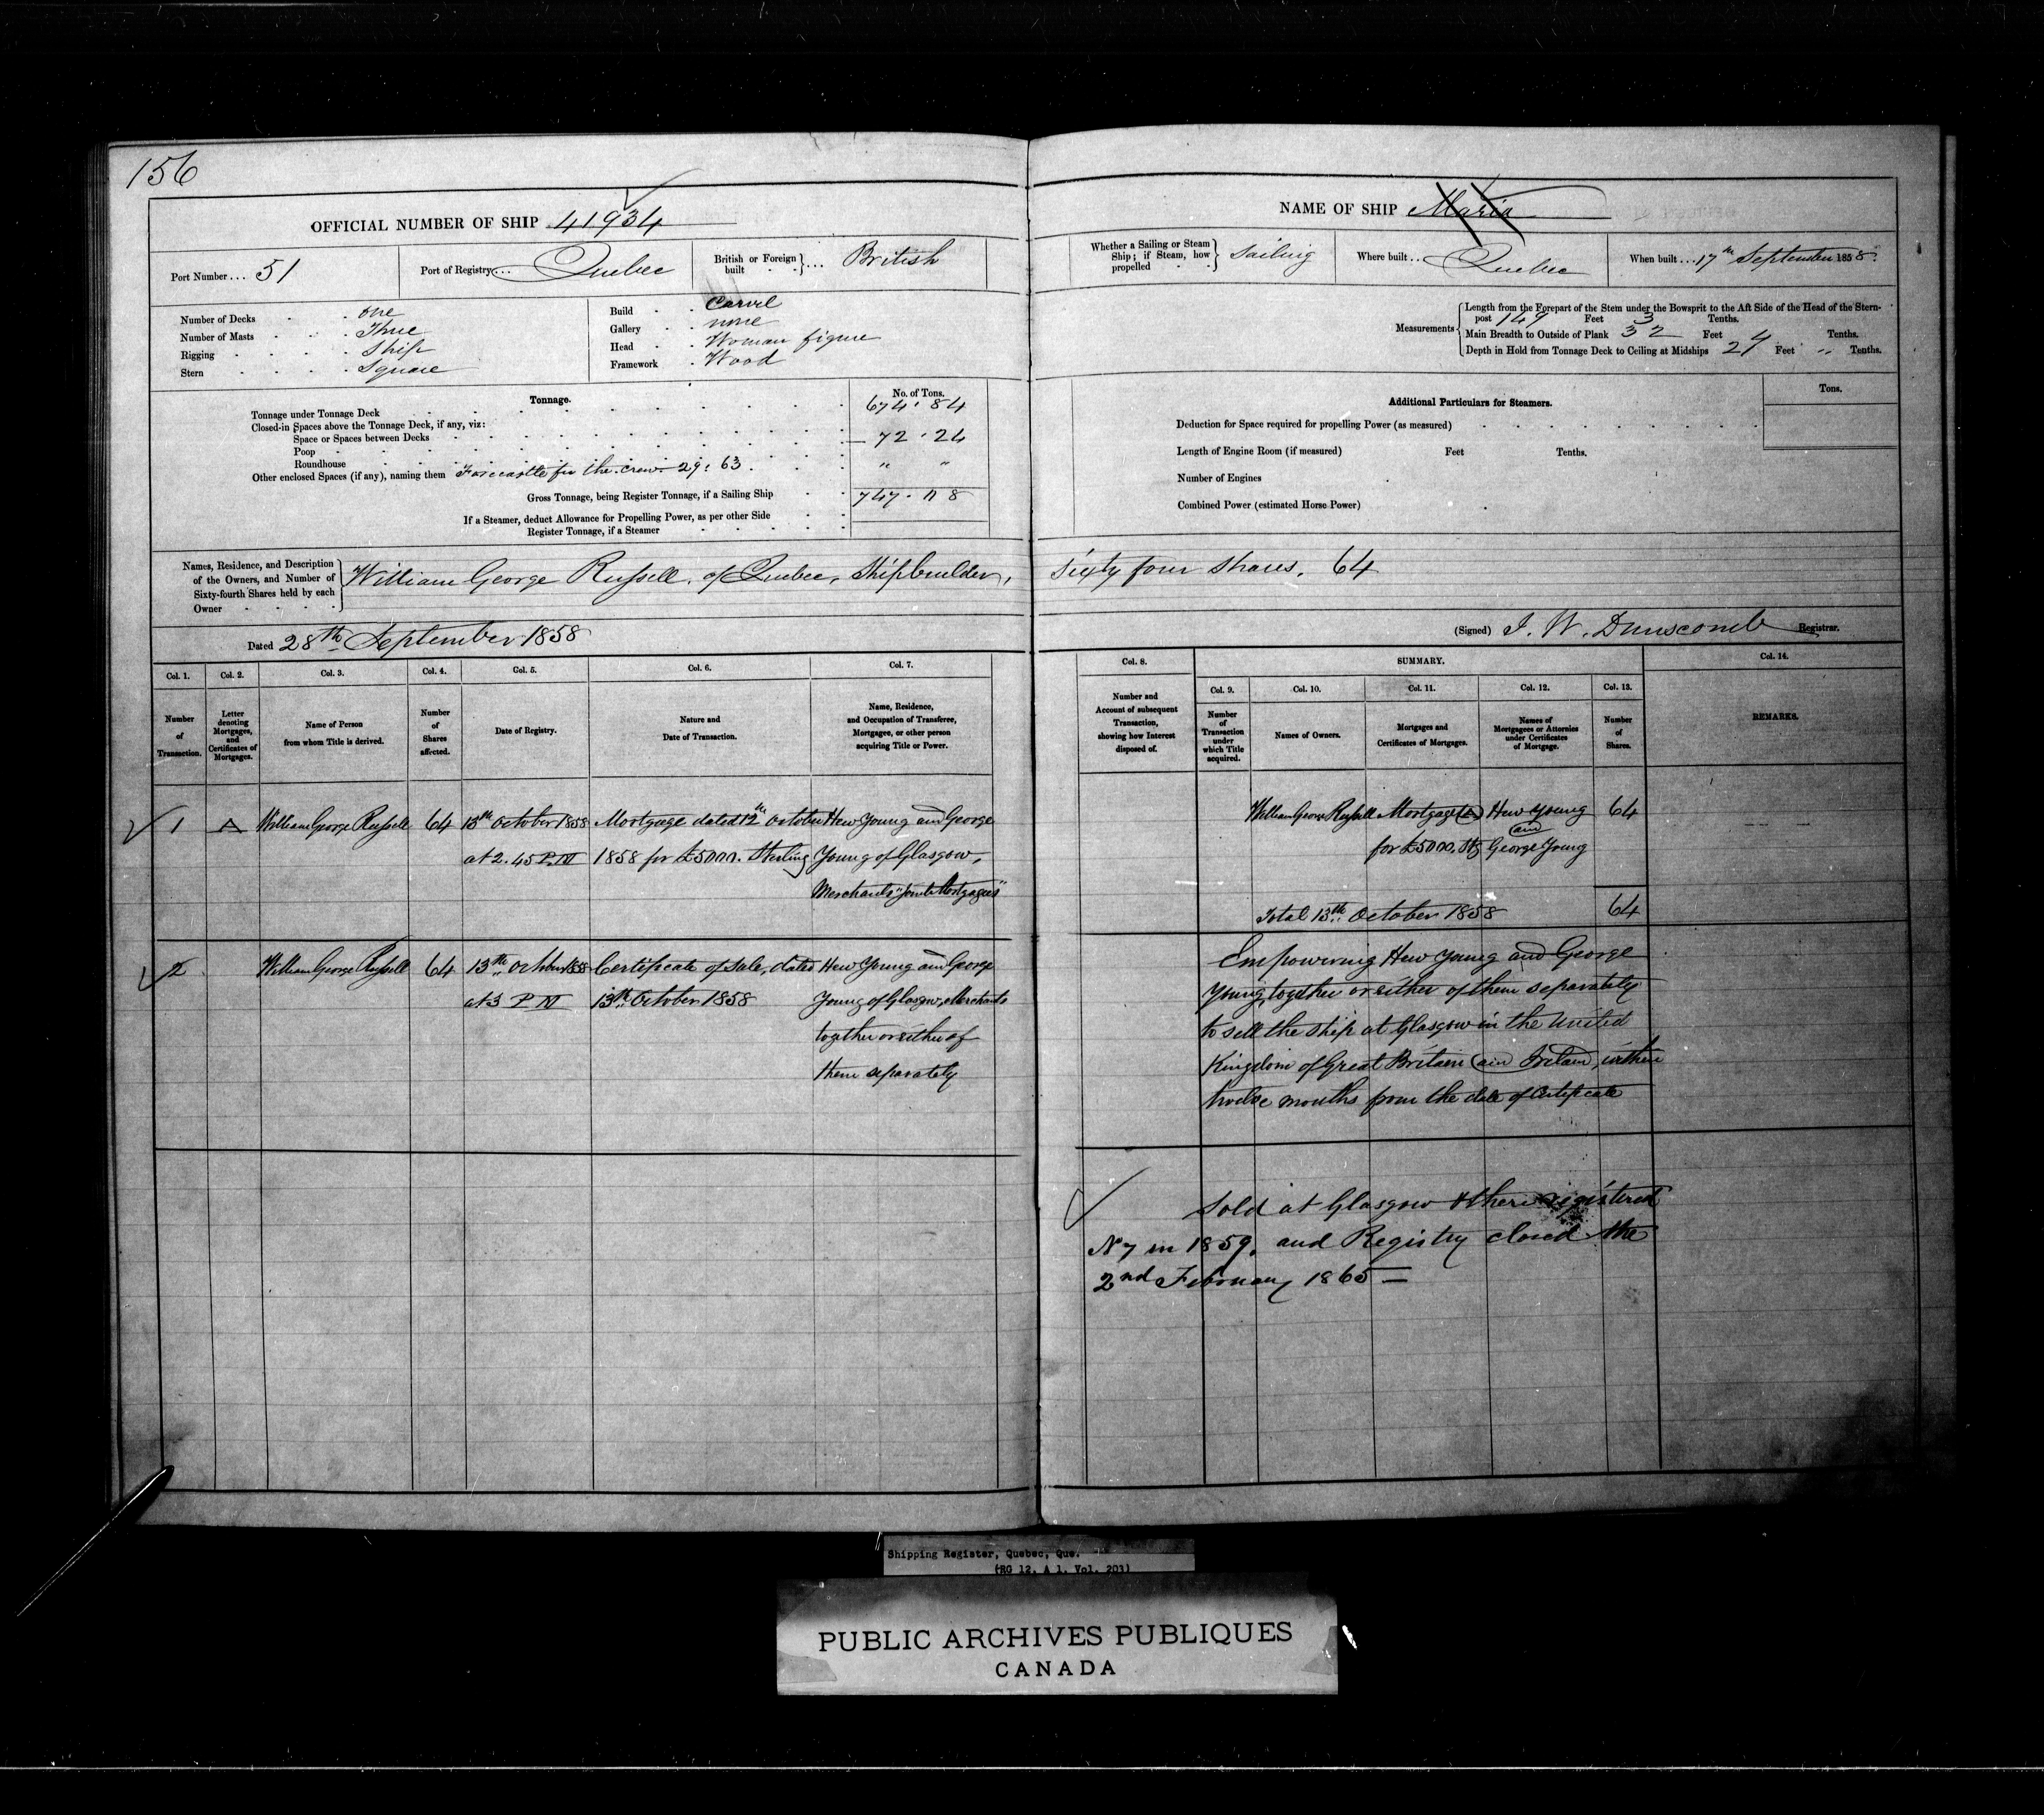 156
OFFICIAL NUMBER OF SHIP 41.934
Port Number... 51
Port of Registry... Quebec
British or Foreign built ... British
Number of Decks one
Number of Masts Three
Rigging Ship
Stern Square
Build Carvel
Gallery none
Head Woman figure
Framework Wood
Tonnage.
No. of Tons.
Tonnage under Tonnage Deck 674.84
Closed-in Spaces above the Tonnage Deck, if any, viz:
Space or Spaces between Decks 72.24
Poop
Roundhouse
Other enclosed Spaces (if any), naming them Forecastle for the crew 29.63 " "
Gross Tonnage, being Register Tonnage, if a Sailing Ship 747.08
If a Steamer, deduct Allowance for Propelling Power, as per other Side
Register Tonnage, if a Steamer
Names, Residence, and Description of the Owners, and Number of Sixty-fourth Shares held by each Owner
William George Russell, of Quebec, Shipbuilder,
Dated 28th September 1858
Col. 1. Col. 2. Col. 3. Col. 4. Col. 5. Col. 6. Col. 7.
Number of Transaction.
Letter denoting Mortgages, and Certificates of Mortgages.
Name of Person from whom Title is derived.
Number of Shares affected.
Date of Registry.
Nature and Date of Transaction.
Name, Residence, and Occupation of Transferee, Mortgagee, or other person acquiring Title or Power.
1 A William George Russell 64 13th October 1858 Mortgage dated 12th October Hew Young and George
at 2.45 P.M 1858 for £5000. Sterling Young of Glasgow,
Merchants "Joint Mortgagees"
2 William George Russell 64 13th October 1858 Certificate of Sale, dated Hew Young and George
at 3 P M 13th October 1858 Young of Glasgow, Merchants
together or either of
them separately
NAME OF SHIP Maria
Whether a Sailing or Steam Ship; if Steam, how propelled Sailing
Where built.. Quebec
When built... 17th September 1858.
Measurements
Length from the Forepart of the Stem under the Bowsprit to the Aft Side of the Head of the Stern-
post 149 Feet 3 Tenths.
Main Breadth to Outside of Plank 32 Feet 4 Tenths.
Depth in Hold from Tonnage Deck to Ceiling at Midships 21 Feet " Tenths.
Additional Particulars for Steamers.
Tons.
Deduction for Space required for propelling Power (as measured)
Length of Engine Room (if measured) Feet Tenths.
Number of Engines
Combined Power (estimated Horse Power)
Sixty four Shares. 64
(Signed) J. W. Dunscomb Registrar.
Col. 8. SUMMARY. Col. 14.
Col. 9. Col. 10. Col. 11. Col. 12. Col. 13.
Number and Account of subsequent Transaction, showing how Interest disposed of.
Number of Transaction under which Title acquired.
Names of Owners.
Mortgages and Certificates of Mortgages.
Names of Mortgagees or Attornies under Certificates of Mortgage.
Number of Shares.
REMARKS.
William George Russell Mortgage (A) Hew Young 64
and
for £5000. Stg George Young
Total 13th October 1858 64
Empowering Hew Young and George
Young, together or either of them separately
to sell the Ship at Glasgow in the United
Kingdom of Great Britain and Ireland, within
twelve months from the date of Certificate
Sold at Glasgow & there registered
No 7 in 1859, and Registry closed the
2nd February 1865 —
Shipping Register, Quebec, Que.
(RG 12, A 1, Vol. 203)
PUBLIC ARCHIVES PUBLIQUES
CANADA